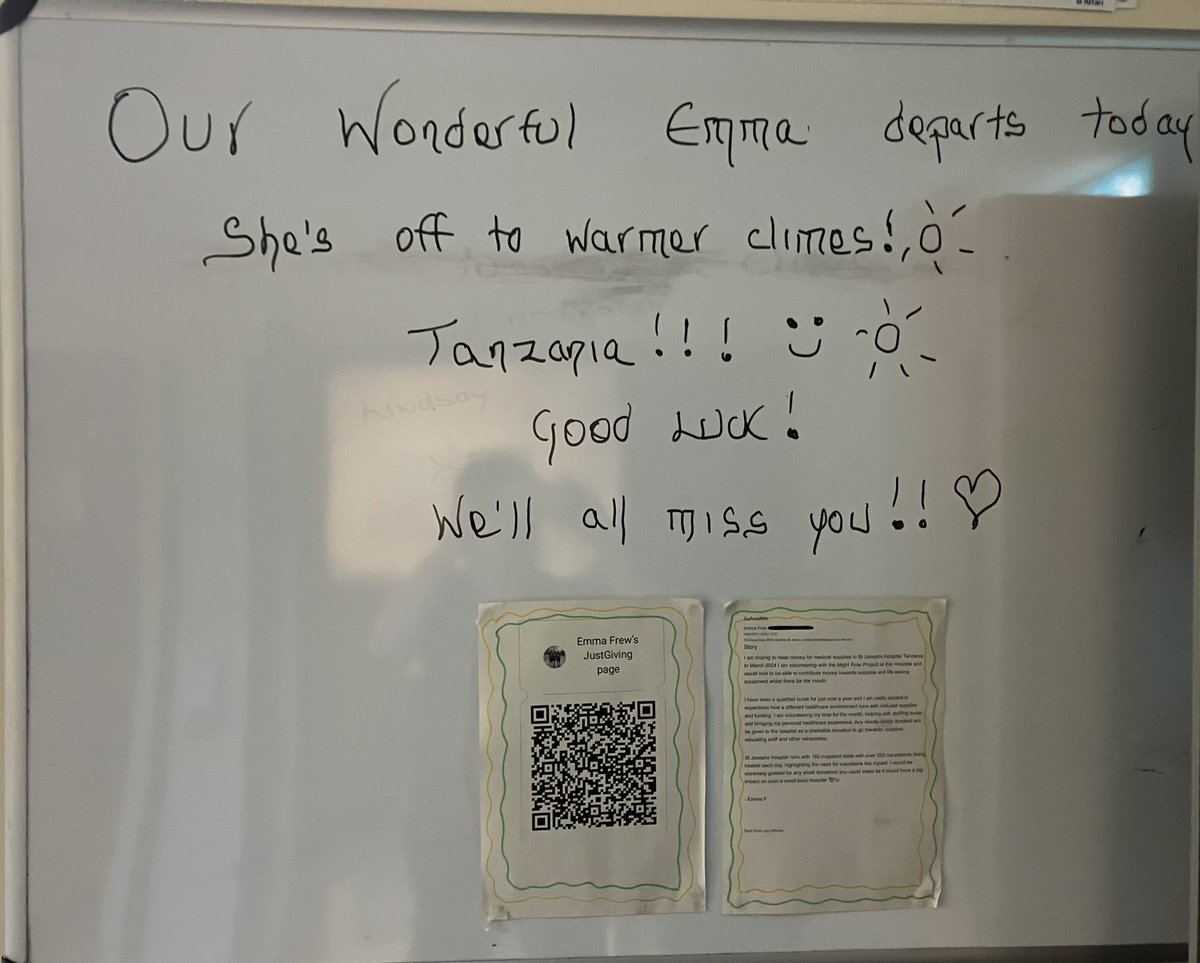 Our Wonderful Emma departs today
She's off to warmer climes!,
Tanzania!!!
Good Luck!
We'll all miss you!!
Lindsay
Emma Frew's
JustGiving
page
GoFundMe
Emma Frew
Story
I am hoping to raise money for medical supplies to St Josephs Hospital Tanzania.
In March 2024 I am volunteering with the Might Rose Project at the Hospital and
would love to be able to contribute money towards supplies and life saving
equipment whilst there for the month.
I have been a qualified nurse for just over a year and I am really excited to
experience how a different healthcare environment runs with reduced supplies
and funding. I am volunteering my time for the month, helping with staffing levels
and bringing my personal healthcare experience. Any money kindly donated will
be given to the hospital as a charitable donation to go towards, supplies,
educating staff and other necessities.
St Josephs hospital runs with 150 inpatient beds with over 200 out-patients being
treated each day, highlighting the need for volunteers like myself. I would be
extremely grateful for any small donations you could make as it would have a big
impact on such a small busy hospital
- Emma F
Sent from my iPhone